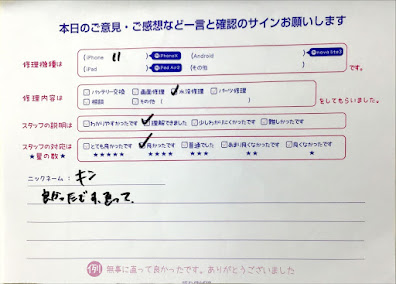 本日のご意見・ご感想など一言と確認のサインお願いします
修理機種は
(iPhone 11 )iPhoneX (Android )nova lite3
(iPad )iPad Air3 (その他 )
です。
修理内容は
□バッテリー交換 □画面修理 ☑水没修理 □パーツ修理
□相談 □その他( )
をしてもらいました。
スタッフの説明は
□わかりやすかったです ☑理解できました □少しわかりにくかったです □難しかったです
スタッフの対応は
★星の数★
□とても良かったです ☑良かったです □普通でした □あまり良くなかったです □良くなかったです
★★★★★ ★★★★ ★★★ ★★ ★
ニックネーム：キン
良かったです、直って、
例 無事に直って良かったです。ありがとうございました